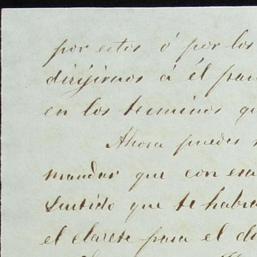 por estos ó por los
dirijirnos á él par
en los terminos q
Ahora puedes
mandar que con esa
Surtido que te habra
el clarete para el d